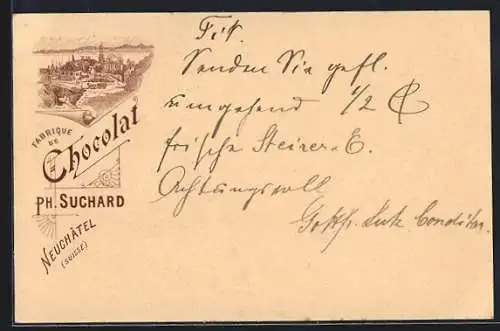 FABRIQUE
DE
Chocolat
PH. SUCHARD
NEUCHÂTEL
(SUISSE)
Senden Sie gefl.
umgehend 1/2
frische Steirer-E.
Achtungsvoll
Gottfr. Conditor.